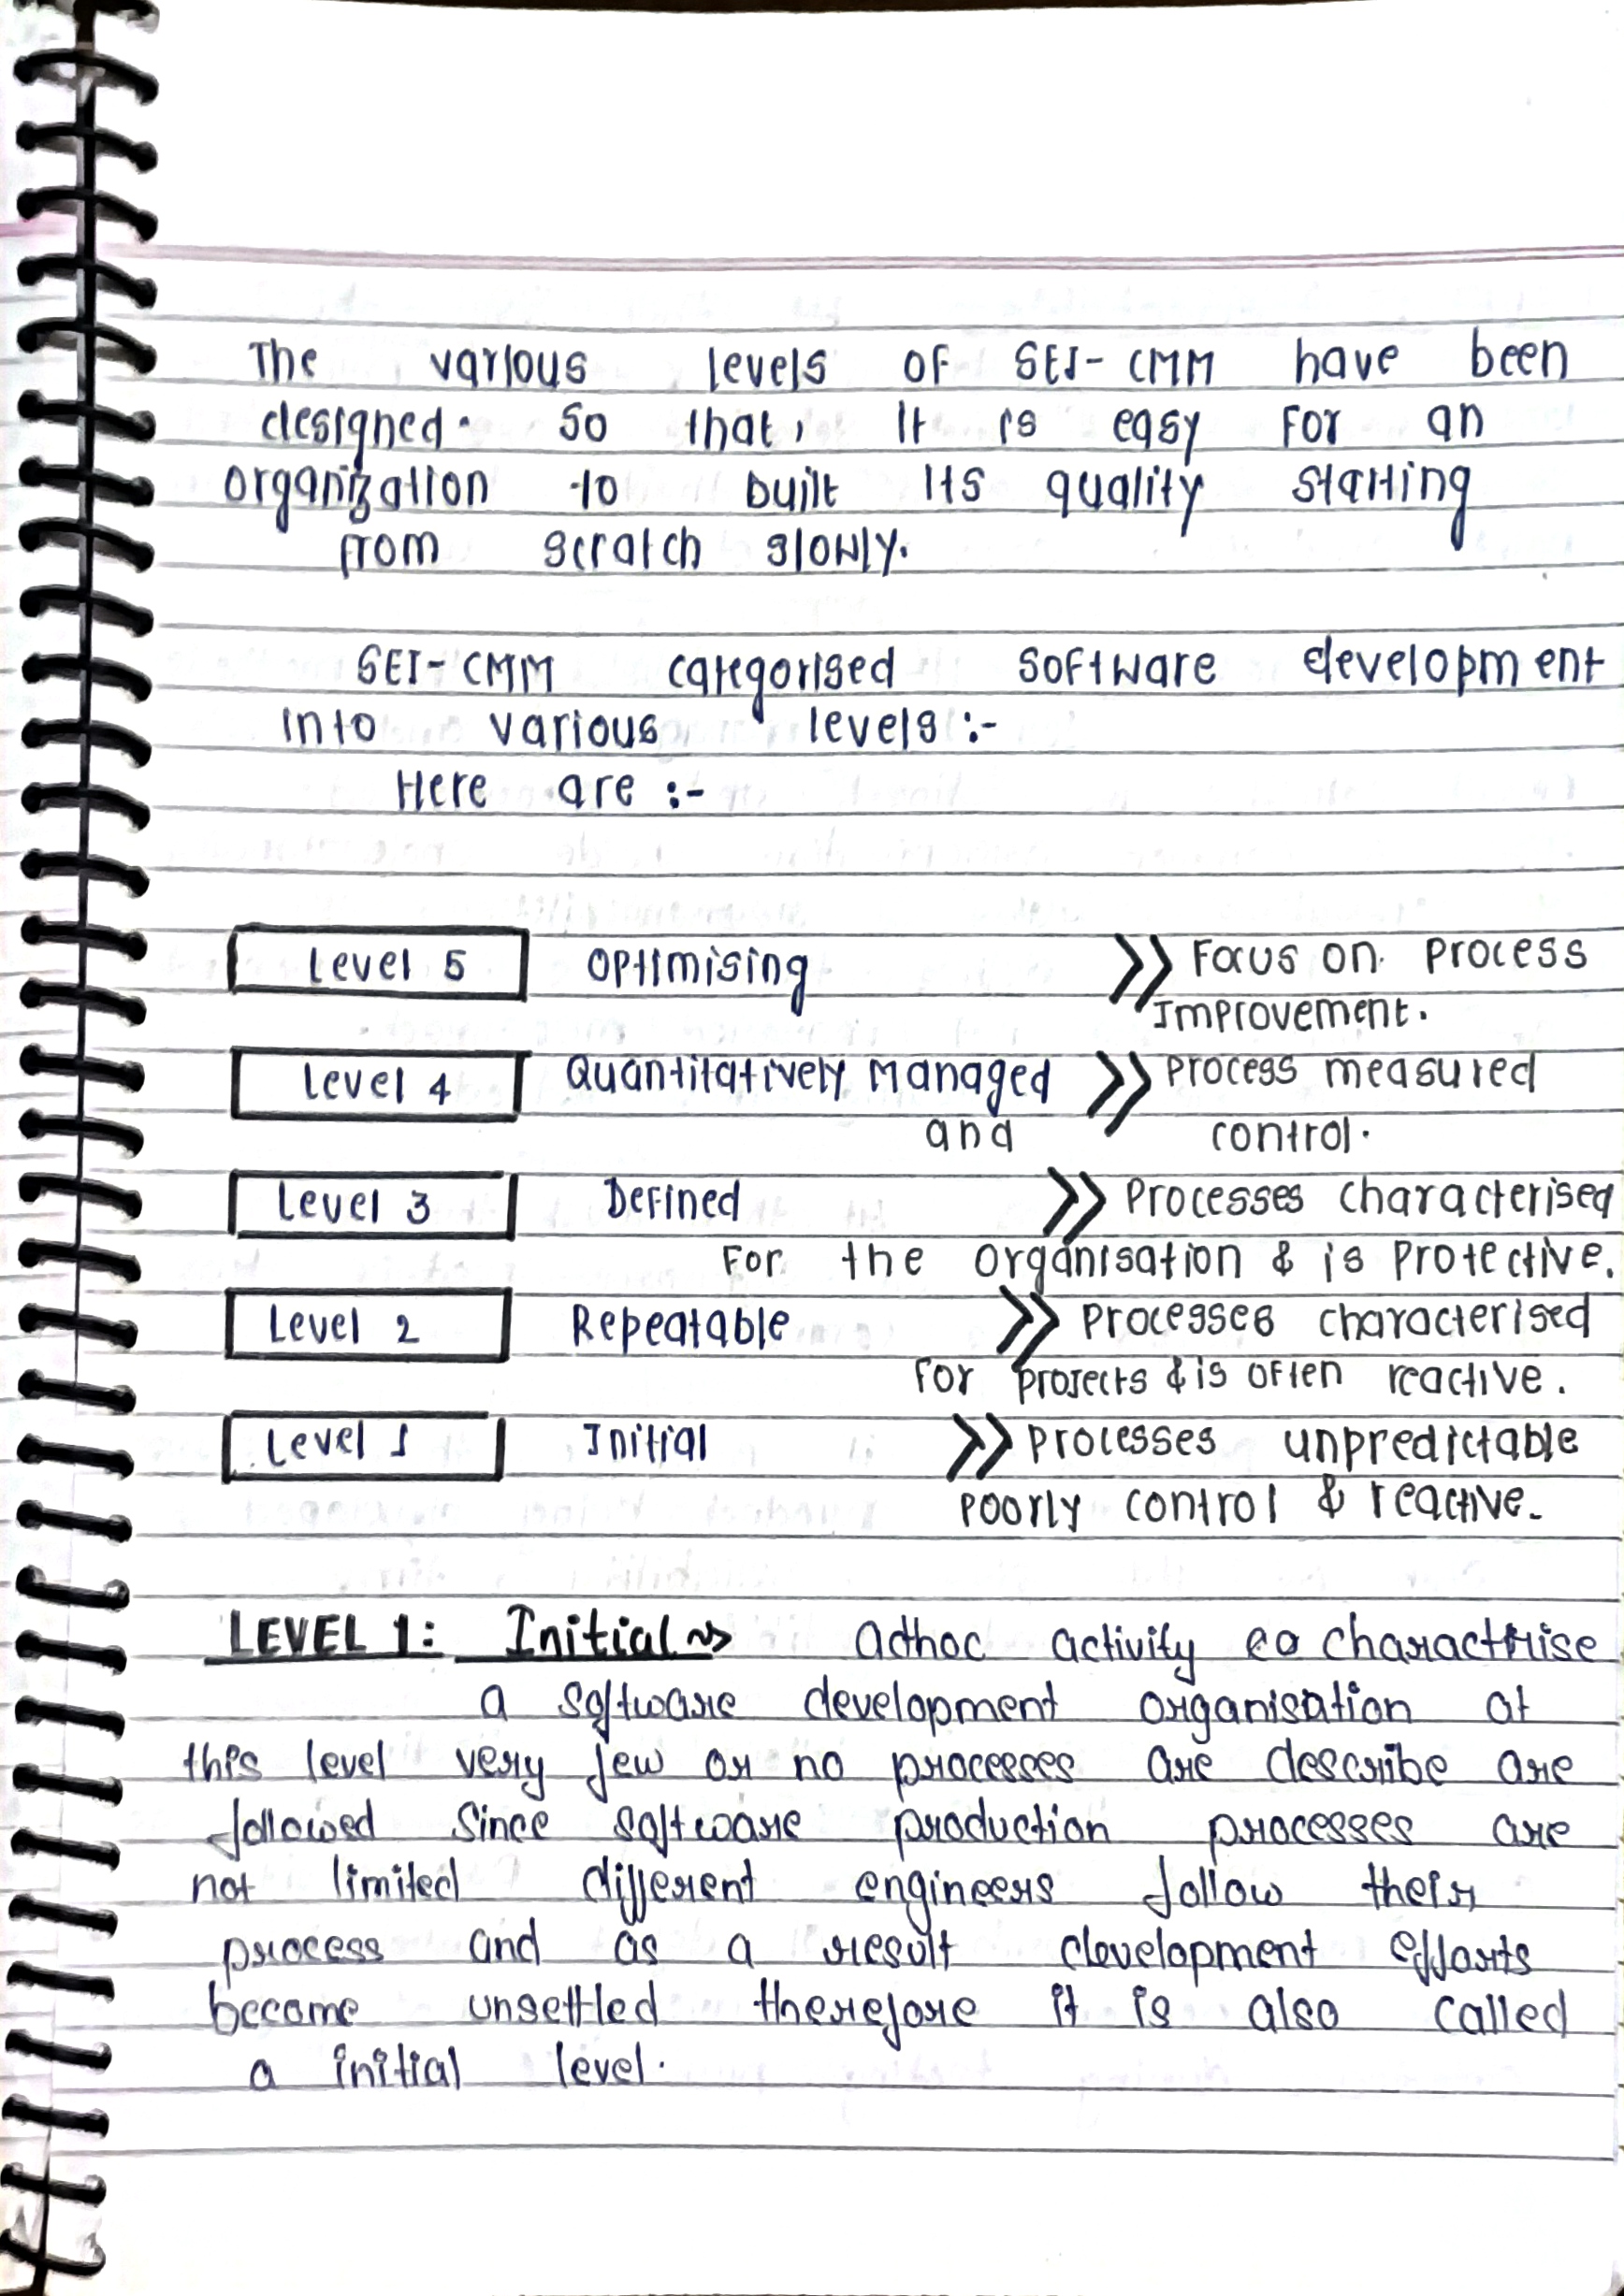 The various levels of SEI-CMM have been
designed. So that, It is easy For an
organization to built Its quality starting
from scratch slowly.
SEI-CMM categorised software development
into various levels :-
Here are :-
Level 5 Optimising >> Focus on Process
Improvement.
Level 4 Quantitatively Managed >> Process measured
and control.
Level 3 Defined >> Processes characterised
For the organisation & is Protective.
Level 2 Repeatable >> Processes characterised
For projects & is often reactive.
Level 1 Initial >> Processes unpredictable
Poorly control & reactive.
LEVEL 1: Initial ~> adhoc activity charactrise
a software development organisation at
this level very few or no processes are describe are
followed Since software production processes are
not limited different engineers follow their
process and as a result development efforts
become unsettled therefore it is also called
a initial level.